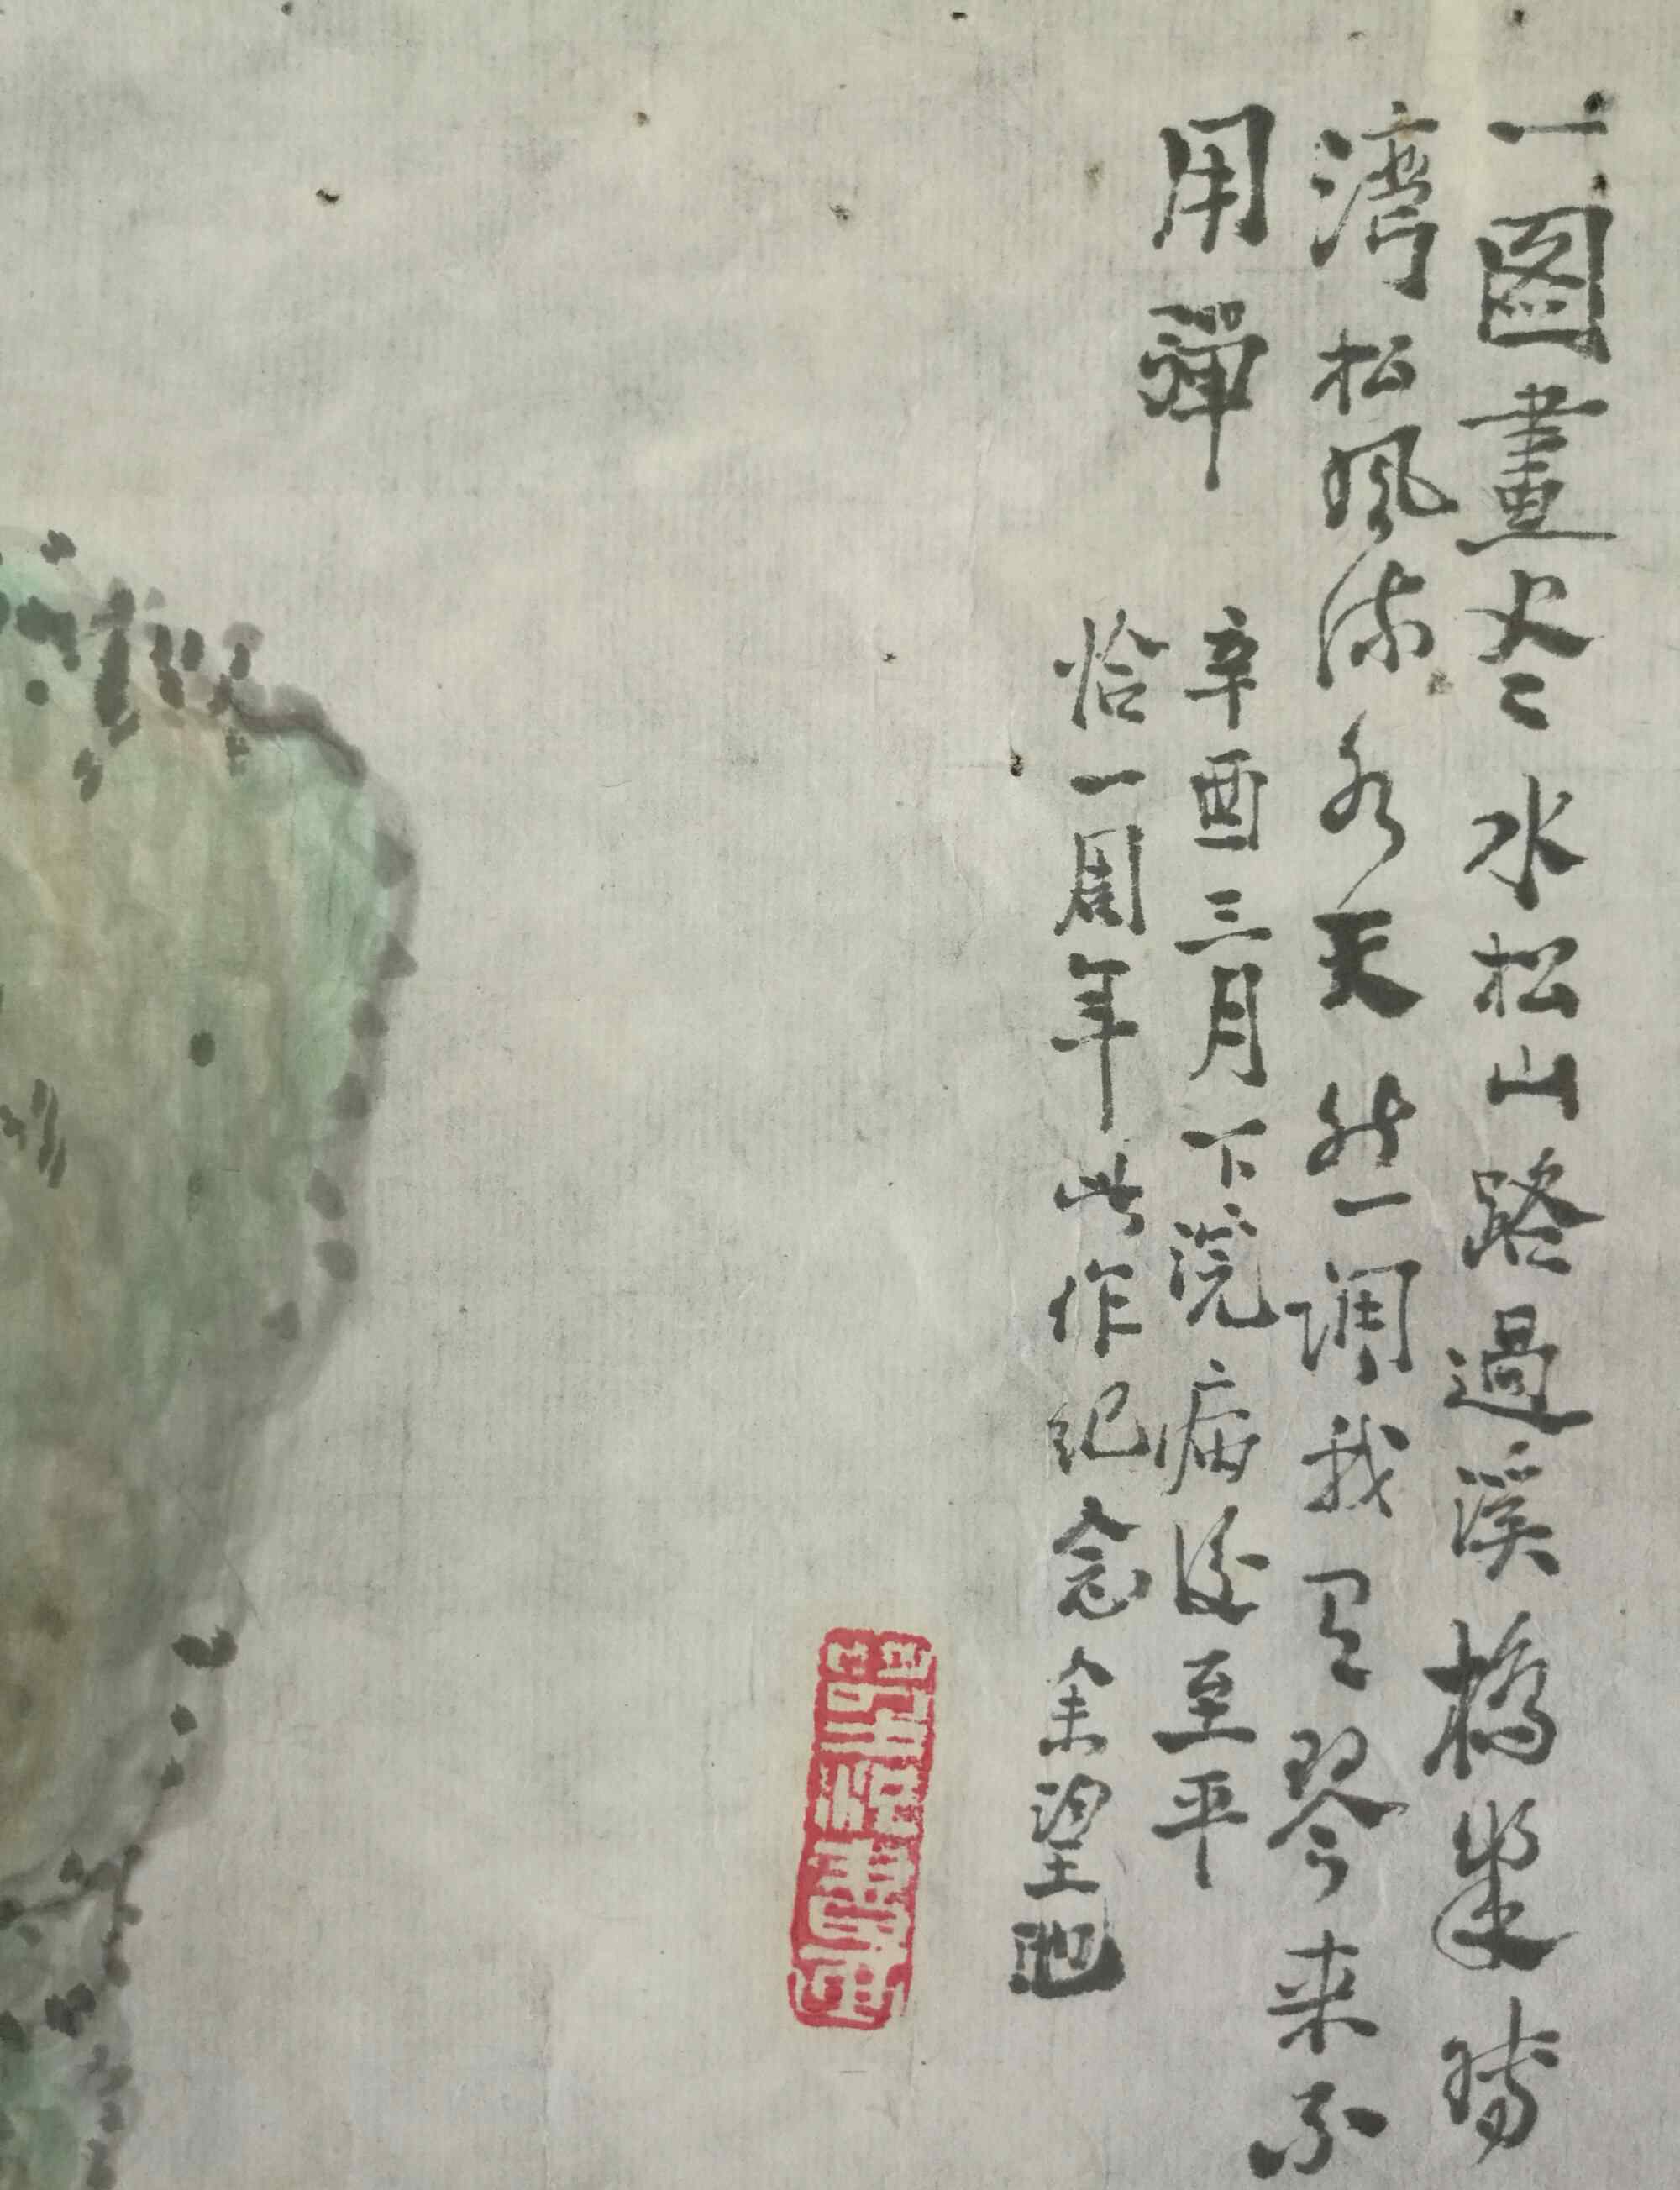 一圖畫尽水松山路過溪橋幾
湾松風流水天然一调我有琴来不
用彈
辛酉三月下浣病後至平
恰一周年此作纪念余望